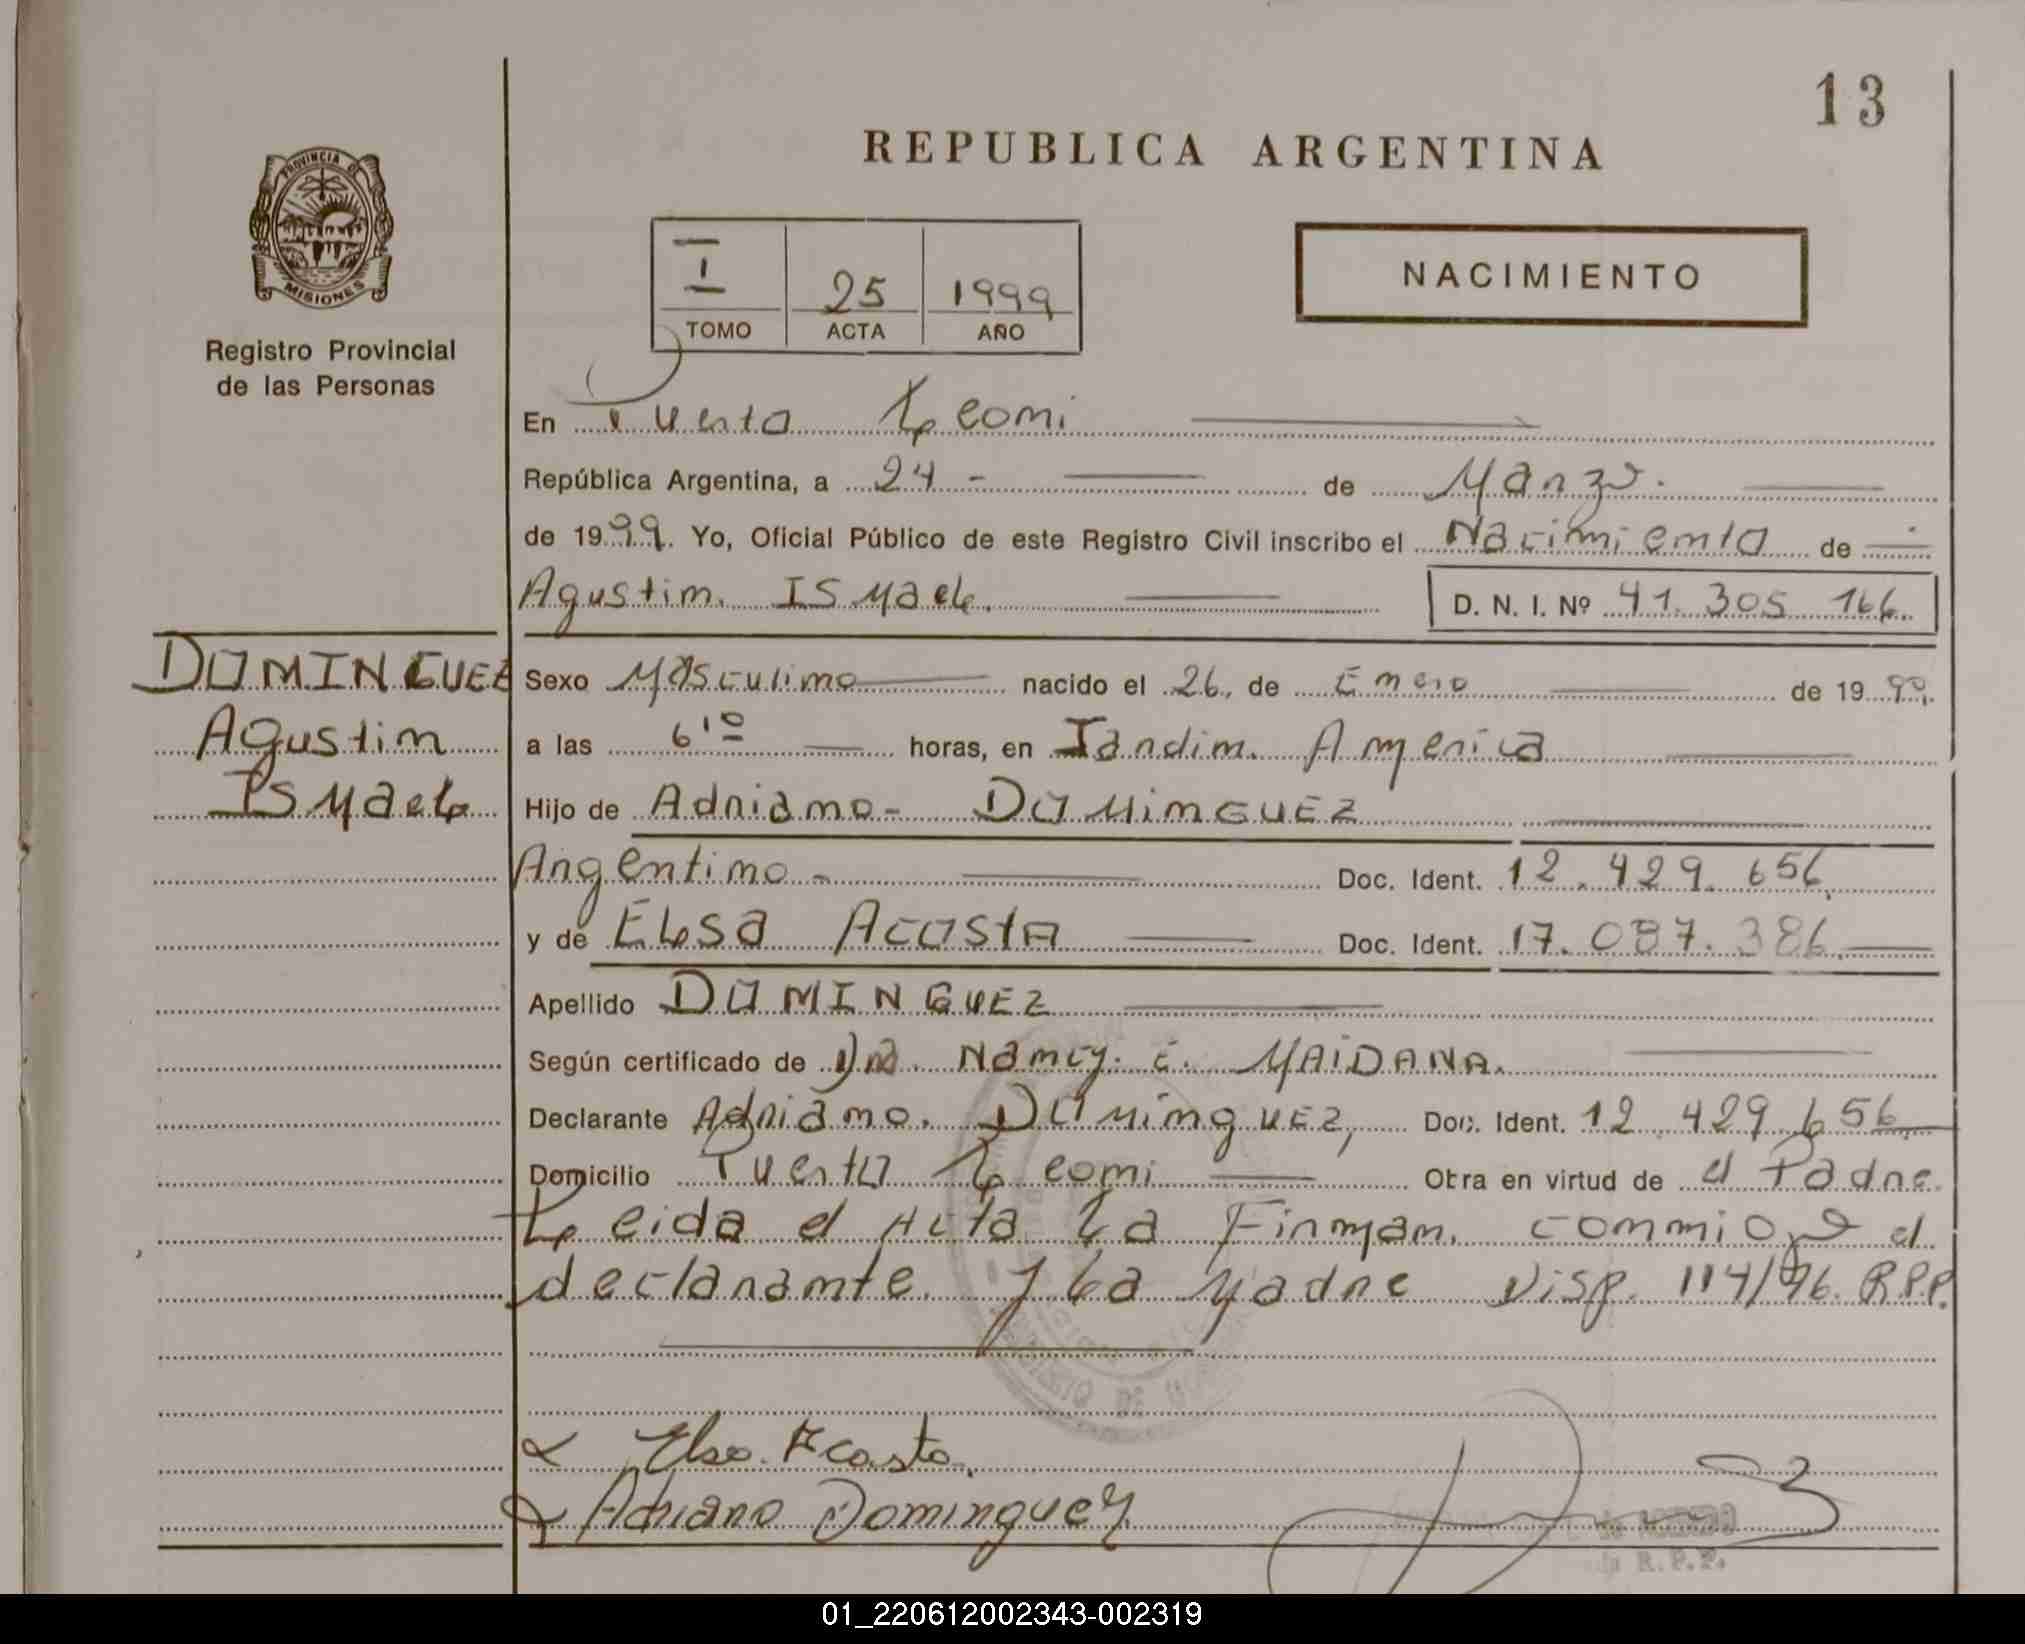 13
REPUBLICA ARGENTINA
PROVINCIA DE
MISIONES
Registro Provincial
de las Personas
I 25 1999
TOMO ACTA AÑO
NACIMIENTO
En Puerto Leoni
República Argentina, a 24 - de Marzo.
de 1999. Yo, Oficial Público de este Registro Civil inscribo el Nacimiento de
Agustin Ismael. D. N. I. Nº 41.305 166.
DOMINGUEZ
Agustin
Ismael
Sexo Masculino nacido el 26 de Enero de 1999.
a las 6'10 horas, en Jardin America
Hijo de Adriano - DOMINGUEZ
Argentino - Doc. Ident. 12.429.656.
y de Elsa Acosta Doc. Ident. 17.087.386
Apellido DOMINGUEZ
Según certificado de Dra. Nancy. E. MAIDANA.
Declarante Adriano. DOMINGUEZ, Doc. Ident. 12 429 656
Domicilio Puerto Leoni Otra en virtud de el Padre
Leida el Acta La Firman conmigo el
declarante y La Madre Disp. 114/96. R.P.P.
Elsa Acosta
Adriano Dominguez
R.P.P.
01_220612002343-002319